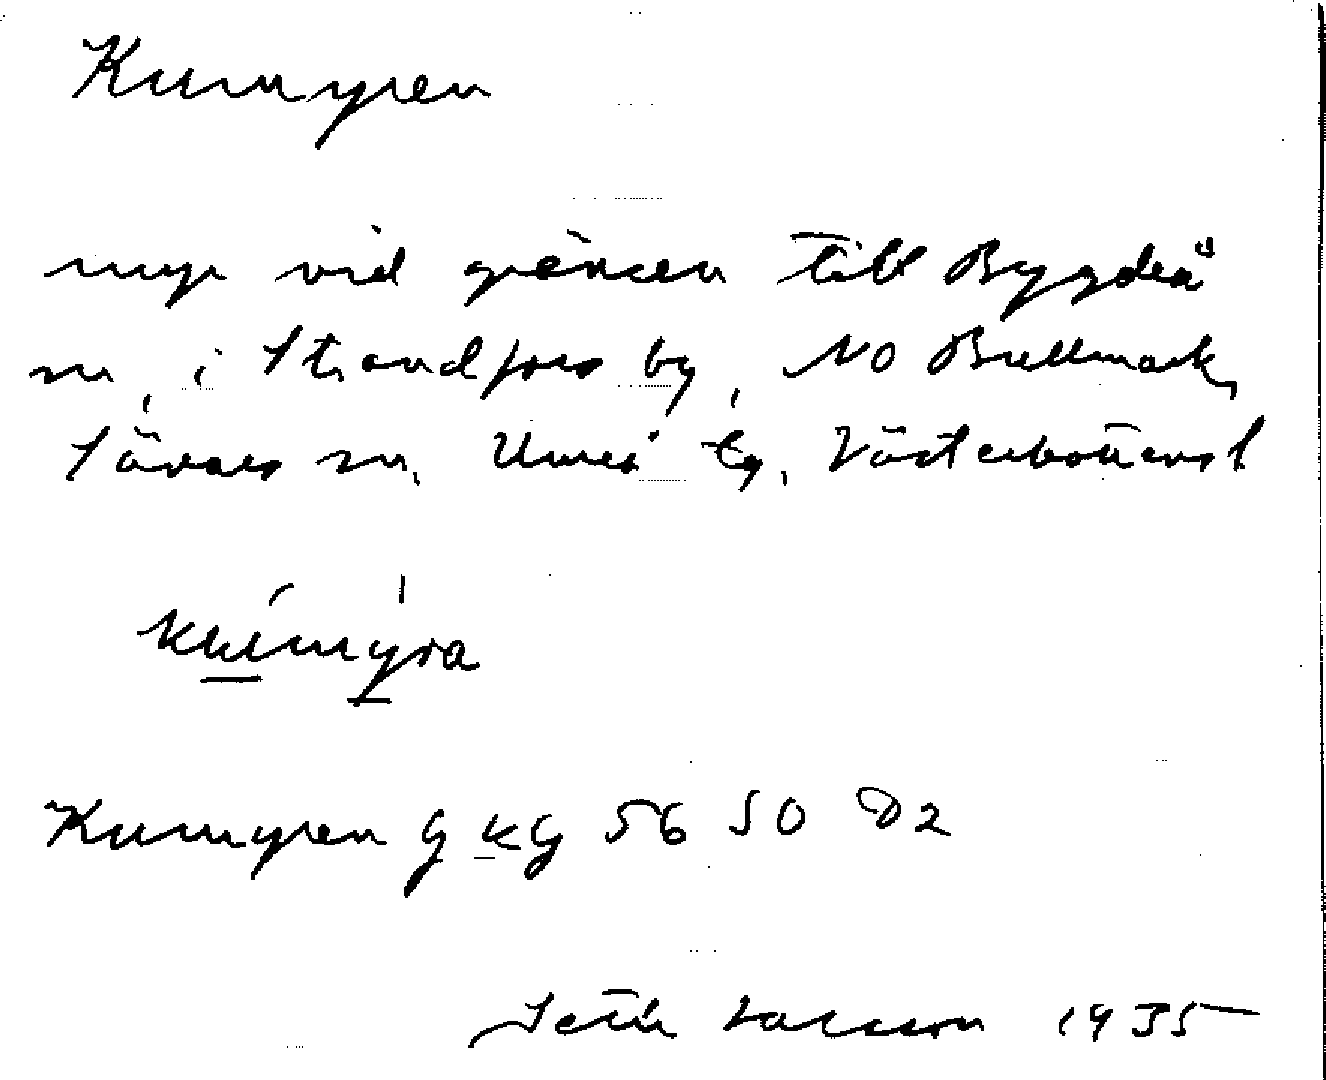 Kumyren
myr vid gränsen till Bygdeå
sn, i Strandfors by, NO Bullmark,
Sävars sn, Umeå tg, Västerbottens l
Kumyren G kg 56 50 D2
Seth Larsson 1935